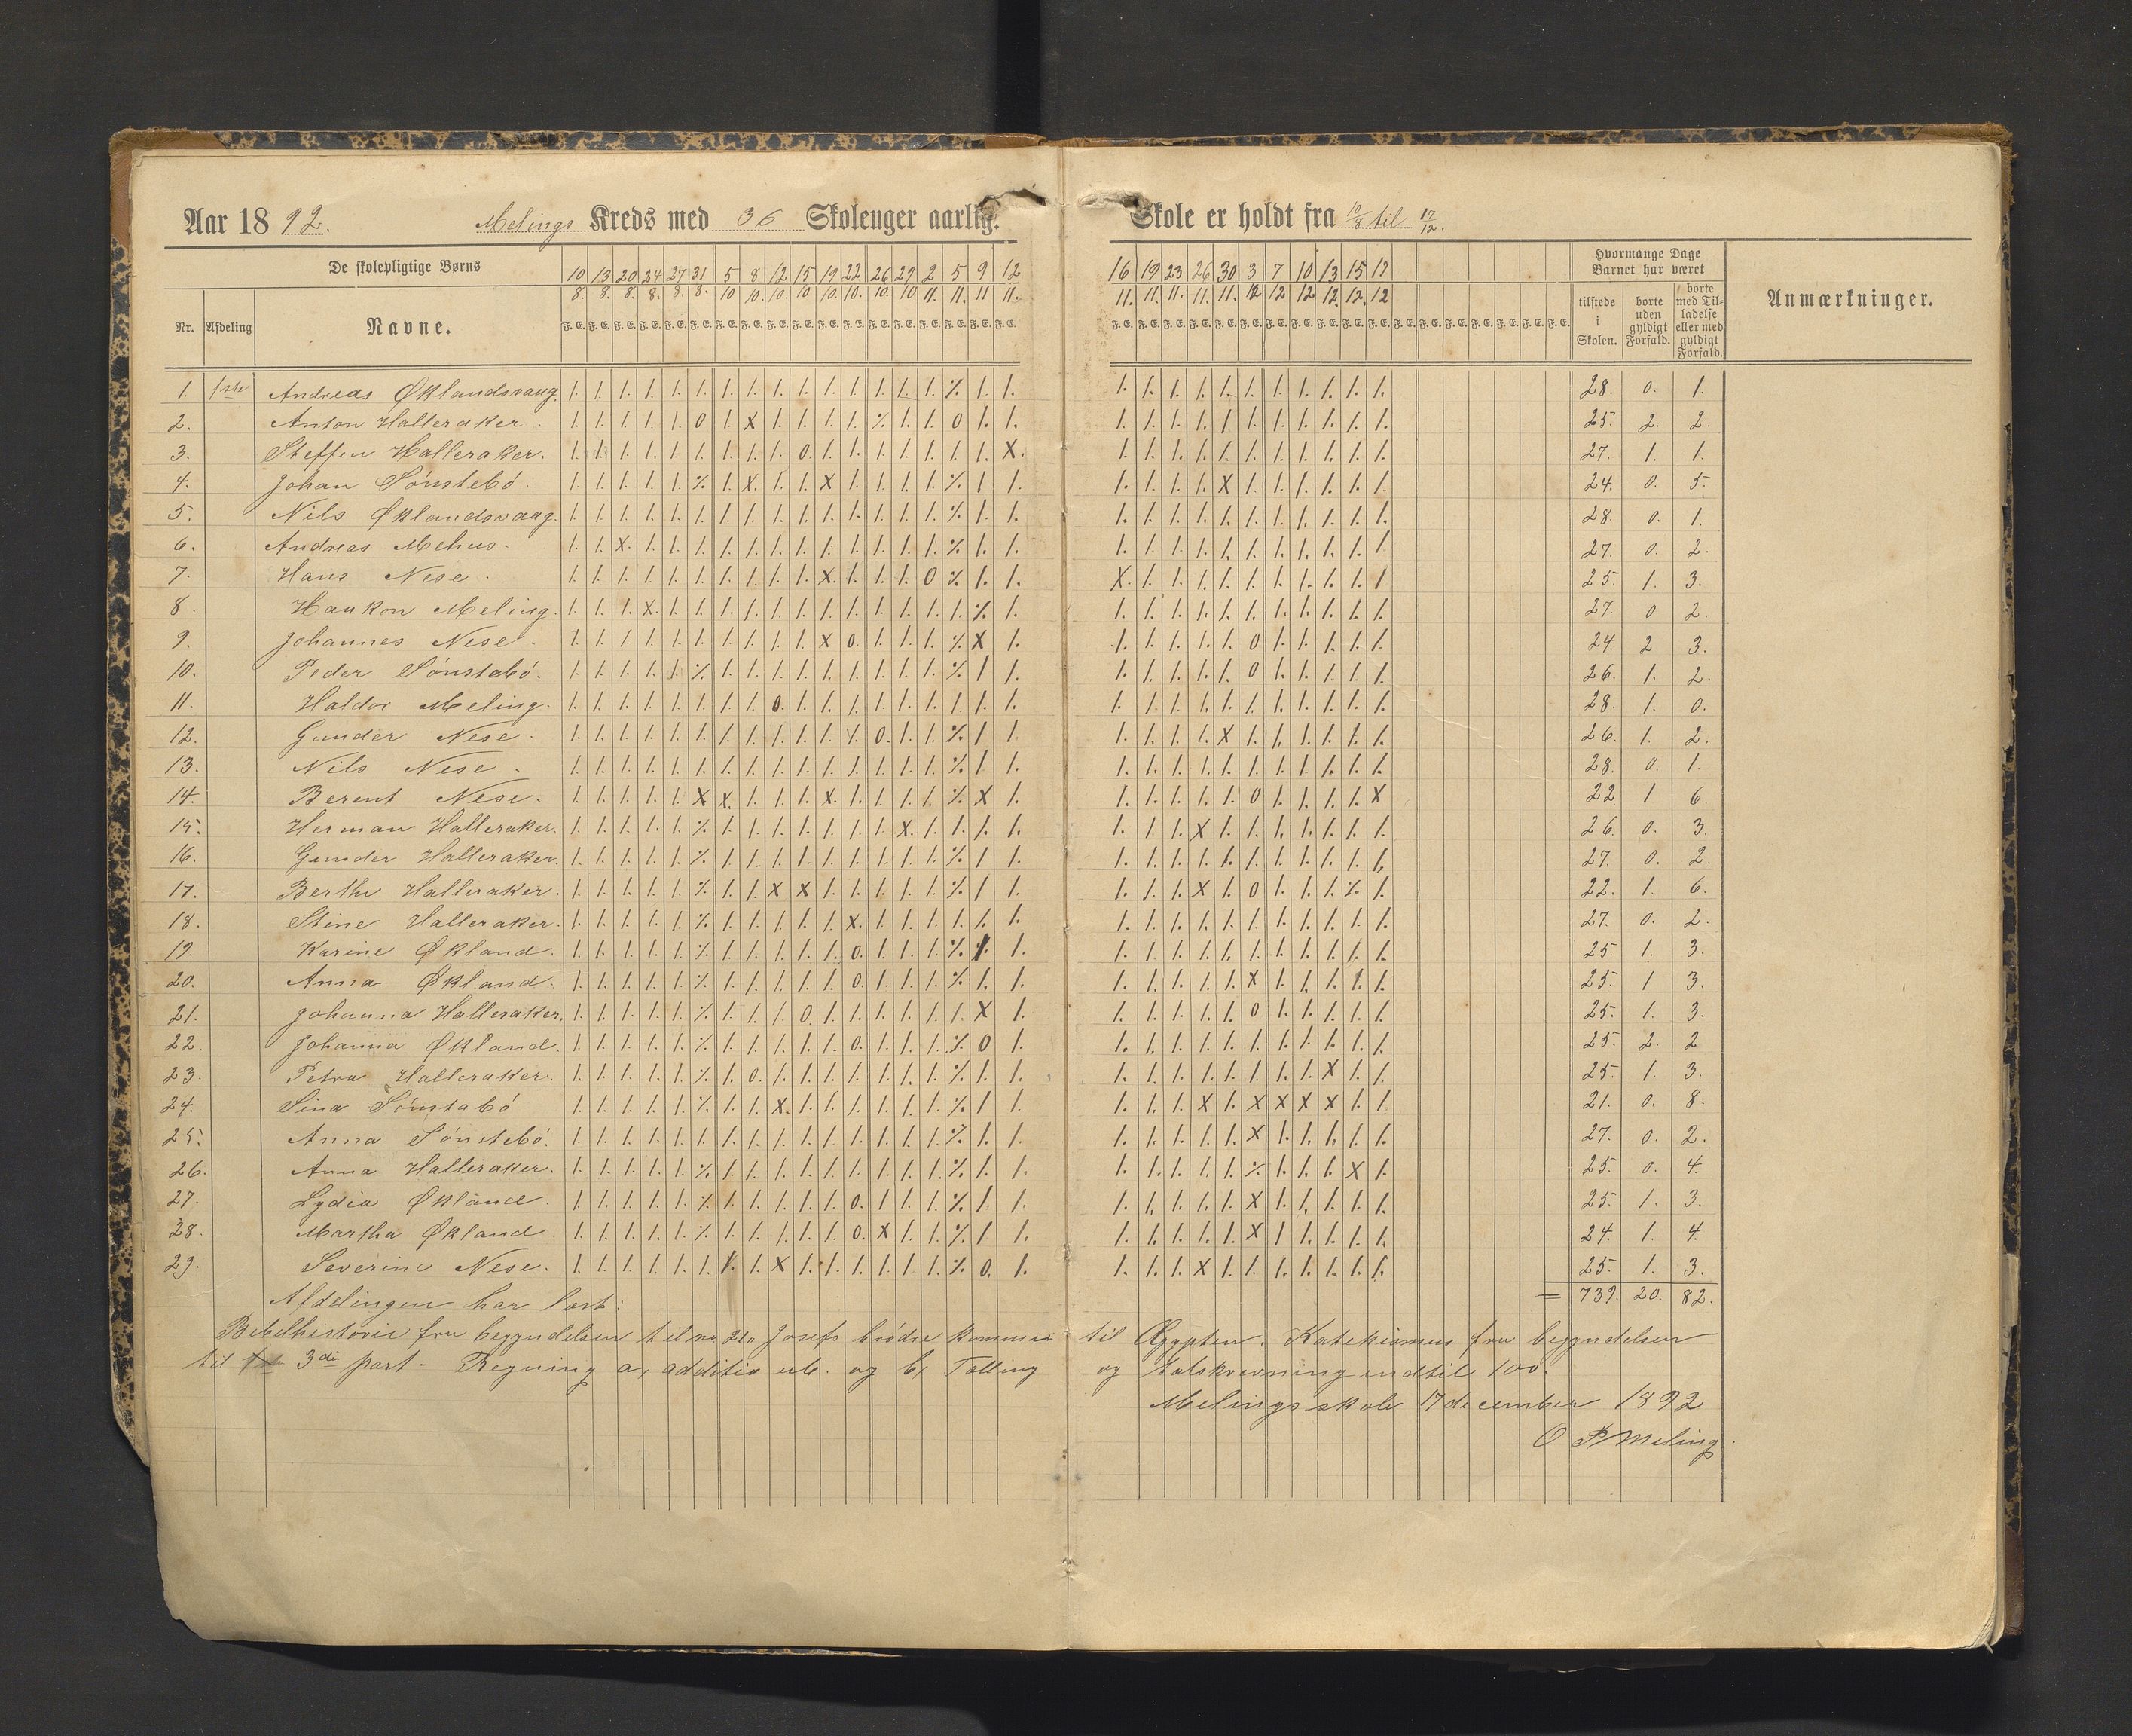 Aar 1892. Melings Kreds med 36 Skoleuger aarlig. Skole er holdt fra 10/8 til 17/12.
De skolepligtige Børns
Hvormange Dage Barnet har været
10 13 20 24 27 31 5 8 12 15 19 22 26 29 2 5 9 12 16 19 23 26 30 3 7 10 13 15 17
8. 8. 8. 8. 8. 8. 10 10. 10. 10 10. 10. 10. 10 11. 11. 11 11. 11. 11. 11. 11. 11. 12 12 12 12. 12. 12
Nr. Afdeling Navne. F. E. F. E. F. E. F. E. F. E. F. E. F. E. F. E. F. E. F. E. F. E. F. E. F. E. F. E. F. E. F. E. F. E. F. E. F. E. F. E. F. E. F. E. F. E. F. E. F. E. F. E. F. E. F. E. F. E. F. E. F. E. F. E. F. E. F. E. F. E. F. E. tilstede i Skolen. borte uden gyldigt Forfald. borte med Tilladelse eller med gyldigt Forfald. Anmærkninger.
1. 1ste Andreas Øklandsvaag. 1. 1. 1. 1. 1. 1. 1. 1. 1. 1. 1. 1. 1. 1. 1. % 1. 1. 1. 1. 1. 1. 1. 1. 1. 1. 1. 1. 1. 28. 0. 1.
2. Anton Halleraker. 1. 1. 1. 1. 1. 0 1. X 1. 1. 1. 1. % 1. 1. 0 1. 1. 1. 1. 1. 1. 1. 1. 1. 1. 1. 1. 1. 25. 2. 2.
3. Steffen Halleraker. 1. 1. 1. 1. 1. 1. 1. 1. 1. 0. 1. 1. 1. 1. 1. 1. 1. X. 1. 1. 1. 1. 1. 1. 1. 1. 1. 1. 1. 27. 1. 1.
4. Johan Sønstebö. 1. 1. 1. 1. 1. % 1. X. 1. 1. X 1. 1. 1. 1. % 1 1. 1. 1. 1. 1. X 1. 1. 1. 1. 1. 1. 24. 0. 5.
5. Nils Øklandsvaag. 1. 1. 1. 1. 1. 1. 1. 1. 1. 1. 1. 1. 1. 1. 1. % 1. 1. 1. 1. 1. 1. 1. 1. 1. 1. 1. 1. 1. 28. 0. 1.
6. Andreas Mehus. 1. 1. X. 1. 1. 1. 1. 1. 1. 1. 1. 1. 1. 1. 1. % 1. 1. 1. 1. 1. 1. 1. 1. 1. 1. 1. 1. 1. 27. 0. 2.
7. Hans Nese. 1. 1. 1. 1. 1. 1. 1. 1. 1. 1. X. 1. 1. 1. 0 % 1. 1. X. 1. 1. 1. 1. 1. 1. 1. 1. 1. 1 25. 1. 3.
8. Haakon Meling. 1. 1. 1. X. 1. 1. 1. 1. 1. 1. 1. 1. 1. 1. 1. 1. % 1. 1. 1. 1. 1. 1. 1. 1. 1. 1. 1. 1. 27. 0 2.
9. Johannes Nese. 1. 1. 1. 1. 1. 1. 1. 1. 1. 1. X 0. 1. 1. 1. % X 1. 1. 1. 1. 1. 1. 0 1. 1. 1. 1. 1. 24. 2 3.
10. Peder Sønstebö. 1. 1. 1. 1. 1. % 1. 1. 1. 1. 1. 1. 1. 1. 1. % 1 1. 1. 1. 1. 1. 1. 0 1. 1. 1. 1. 1. 26. 1. 2.
11. Haldor Meling. 1. 1. 1. 1. 1. 1. 1. 1. 0. 1. 1. 1. 1. 1. 1. 1. 1. 1. 1. 1. 1. 1. 1. 1. 1. 1. 1. 1. 1. 28. 1. 0.
12. Gunder Nese. 1. 1. 1. 1. 1. 1. 1. 1. 1. 1. 1. 1. 0. 1. 1. % 1 1. 1. 1. 1. 1. X 1. 1. 1. 1. 1. 1. 26. 1. 2.
13. Nils Nese. 1. 1. 1. 1. 1. 1. 1. 1. 1. 1. 1. 1. 1. 1. 1. % 1. 1. 1. 1. 1. 1. 1. 1. 1. 1. 1. 1. 1. 28. 0. 1.
14. Berent Nese. 1. 1. 1. 1. 1. X X. 1. 1. 1. X. 1. 1. 1. 1. % X 1. 1. 1. 1. 1. 1. 0 1. 1. 1. 1. X 22. 1 6.
15. Herman Halleraker. 1. 1. 1. 1. 1. % 1. 1. 1. 1. 1. 1. 1. X. 1. 1. 1. 1. 1. 1. 1. X 1. 1. 1. 1. 1. 1. 1. 26. 0. 3.
16. Gunder Halleraker. 1. 1. 1. 1. 1. % 1. 1. 1. 1. 1. 1. 1. 1. 1. % 1 1. 1. 1. 1. 1. 1. 1. 1. 1. 1. 1. 1. 27. 0. 2.
17. Berthe Halleraker. 1. 1. 1. 1. 1. % 1. 1. X X 1. 1. 1. 1. 1. % 1 1. 1. 1. 1. X 1. 0 1. 1. 1. % 1. 22. 1. 6.
18. Stine Halleraker. 1. 1. 1. 1. 1. % 1. 1. 1. 1. 1. X. 1. 1. 1. 1. 1. 1. 1. 1. 1. 1. 1. 1. 1. 1. 1. 1. 1. 27. 0. 2.
19. Karine Økland. 1. 1. 1. 1. 1. % 1. 1. 1. 1. 1. 0. 1. 1. 1. % % 1. 1. 1. 1. 1. 1. 1. 1. 1. 1. 1. 1. 25. 1. 3.
20. Anna Økland. 1. 1. 1. 1. 1. % 1. 1. 1. 1. 1. 0. 1. 1. 1. % 1. 1. 1. 1. 1. 1. 1. X 1. 1. 1. 1. 1. 25. 1 3.
21. Johanna Halleraker. 1. 1. 1. 1. 1. % 1. 1. 1. 0. 1. 1. 1. 1. 1. 1. X 1. 1. 1. 1. 1. 1. 0 1. 1. 1. 1. 1. 25. 1. 3.
22. Johanna Økland. 1. 1. 1. 1. 1. % 1. 1. 1. 1. 1. 0. 1. 1. 1. % 0 1. 1. 1. 1. 1. 1. 1. 1. 1. 1. 1. 1. 25. 2. 2
23. Petra Halleraker. 1. 1. 1. 1. 1. % 1. 0. 1. 1. 1. 1. 1. 1. 1. % 1. 1. 1. 1. 1. 1. 1. 1. 1. 1. X 1. 1. 25. 1. 3.
24. Sina Sönstabö 1. 1. 1. 1. 1. % 1. 1. X. 1. 1. 1. 1. 1. 1. % 1 1. 1. 1. 1. X 1. X X X X 1. 1. 21. 0. 8.
25. Anna Sönstebö. 1. 1. 1. 1. 1. 1. 1. 1. 1. 1. 1. 1. 1. 1. 1. % 1. 1. 1. 1. 1. 1. 1. X 1. 1. 1. 1. 1. 27. 0. 2.
26. Anna Halleraker. 1. 1. 1. 1. 1. % 1. 1. 1. 1. 1. 1. 1. 1. 1. % 1. 1. 1. 1. 1. 1. 1. % 1. 1. 1. X 1. 25. 0. 4.
27. Lydia Økland. 1. 1. 1. 1. 1. % 1. 1. 1. 1. 1. 0. 1 1. 1. % 1 1. 1. 1. 1. 1. 1. X 1. 1. 1. 1. 1. 25. 1. 3.
28. Martha Økland. 1. 1. 1. 1. 1. % 1. 1. 1. 1. 1. 0. X 1. 1. % 1 1. 1. 1. 1. 1. 1. X 1 1. 1. 1. 1. 24. 1. 4.
29. Severine Nese. 1. 1. 1. 1. 1. 1. 1. 1. X 1. 1. 1. 1. 1. 1. % 0. 1. 1. 1. 1. X 1. 1. 1. 1. 1. 1. 1. 25. 1. 3.
Afdelingen har læst: = 739. 20. 82.
Bibelhistorie fra begyndelsen til no 21, Josefs brödre kommer til Ægypten. Katekismus fra begyndelsen
til 3die part. Regning a, additio utb. og b, Tælling og talskrivning indtil 100.
Melings skole 17 december 1892
O P Meling.